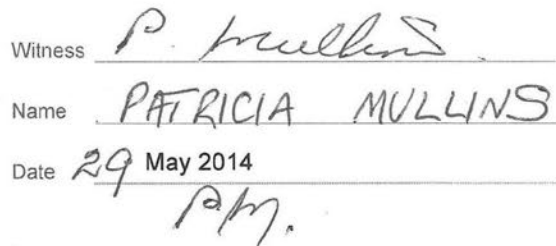 Witness P. Mullins
Name PATRICIA MULLINS
Date 29 May 2014
P.M.